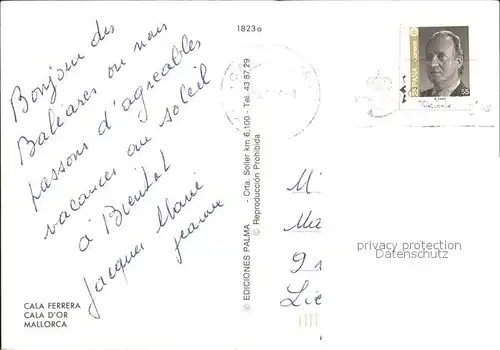 1823a
Bonjour des
Baléares ou nous
passons d'agréables
vacances au soleil
à Bientôt
Jacques Marie
Jeanne
CALA FERRERA
CALA D'OR
MALLORCA
© EDICIONES PALMA - Crta. Soller km 6,100 - Tel. 43 87 29
© Reproducción Prohibida
ESPAÑA
55
M
9
privacy protection
Datenschutz